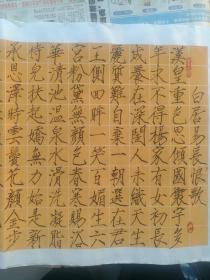 白居易長恨歌
漢皇重色思傾國御宇多
年求不得楊家有女初長
成養在深閨人未識天生
麗質難自棄一朝選在君
王側回眸一笑百媚生六
宮粉黛無顏色春寒賜浴
華清池温泉水滑洗凝脂
侍兒扶起嬌無力始是新
承恩澤時雲鬢花顏金步